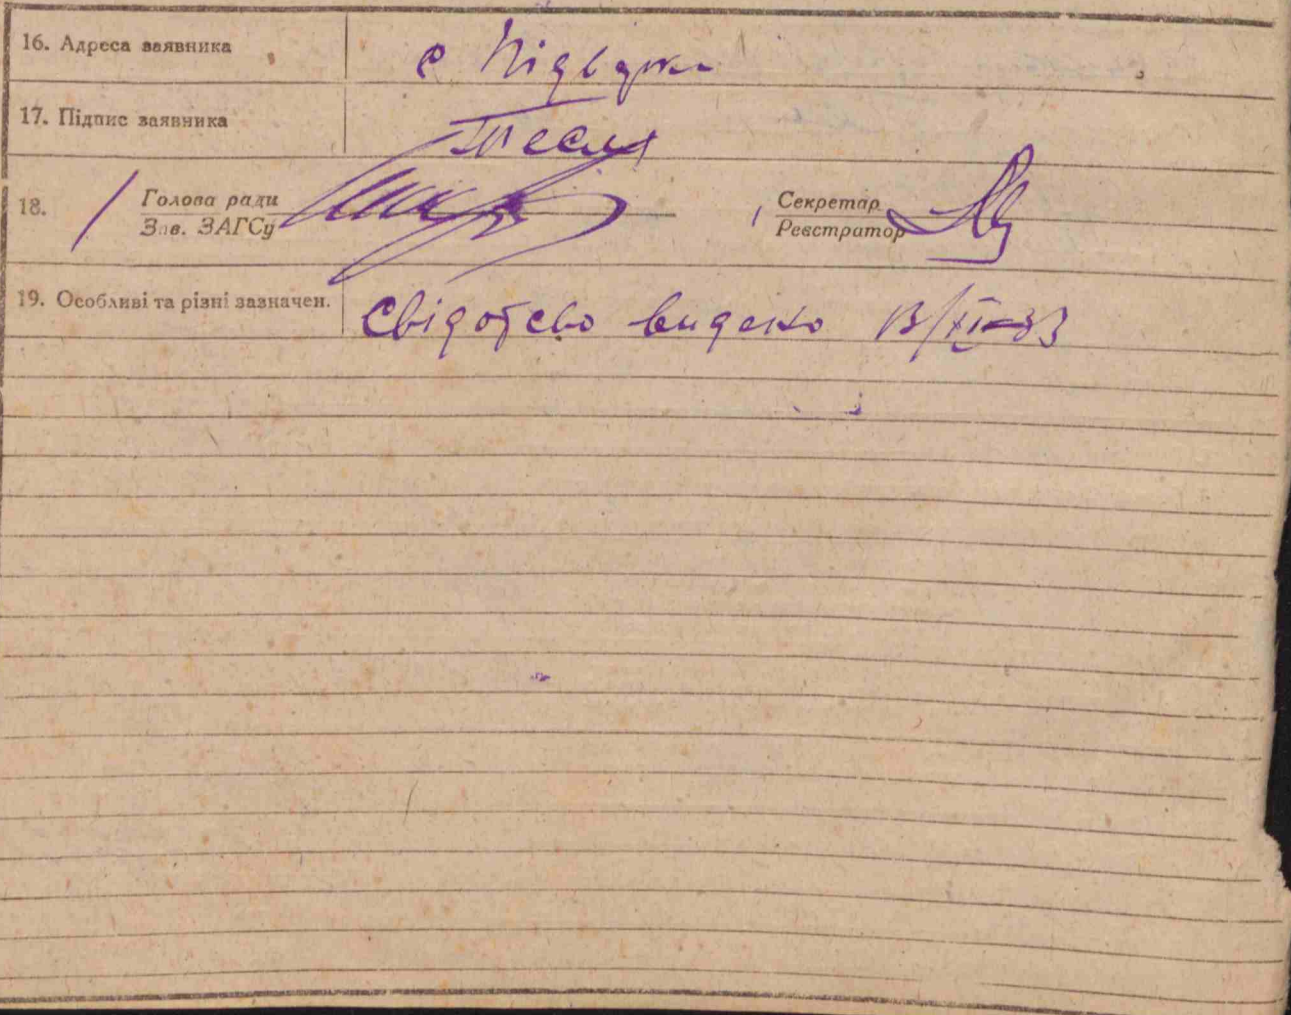 16. Адреса заявника с Підварки
17. Підпис заявника Тесля
18. Голова ради
Зав. ЗАГСу
Секретар
Реєстратор
19. Особливі та різні зазначен. Свідотсво видано 13/XI-33